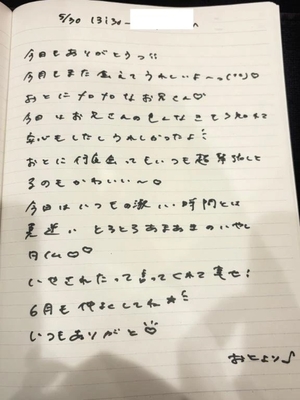 5/30 13:30-
今日もありがとうっ!!
今月もまた会えてうれしいよ〜っ(^^)♡
おとにメロメロなお兄さん♡
今日はお兄さんの色んなとこ知れて
安心もしたしうれしかったよ!
おとに付き合ってもいつも超早起して
るのもかわいい〜♡
今日はいつもの激しい時間とは
真逆いとろとろあまあまのいやし
月(ん♡♡
いやされたって言ってくれて幸せ!
6月も仲よくしてね★
いつもありがと♡
おとより♪